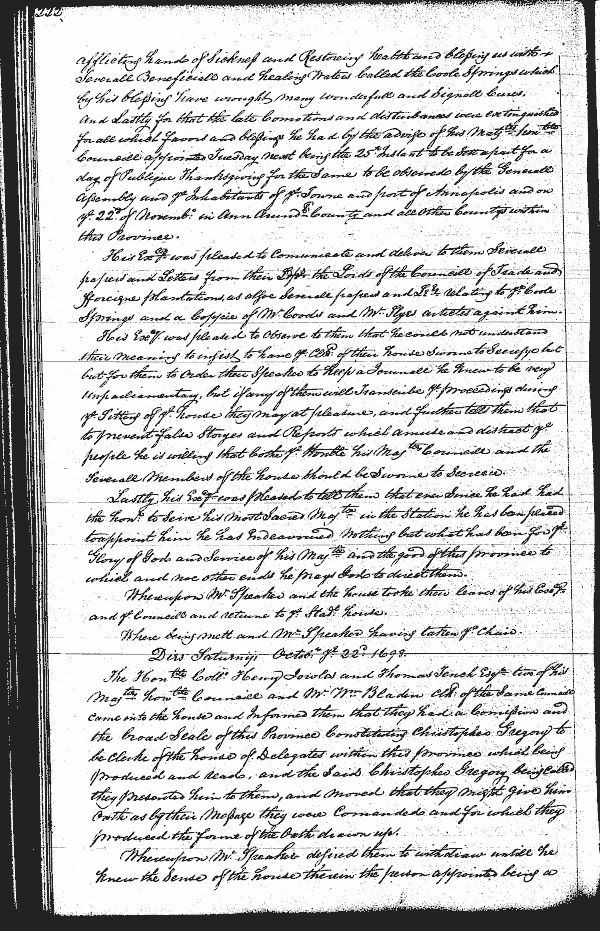 222
afflicting hand of Sickness and Restoreing health and blessing us with
Severall Beneficiall and healing Waters Called the Coole Springs which
by his blessing have wrought many wonderfull and Signall Cures.
And Lastly for that the late Comotions and disturbances were extinguished
for all which favors and blessings he had by the advise of his Maj.tys hon.ble
Councill appointed Tuesday next being the 25.th Instant to be Sett apart for a
day of Publique Thanksgiving for the Same to be observed by the Generall
Assembly and y.e Inhabitants of y.e Towne and port of Annapolis and on
y.e 22.d of Novemb.r in Ann Arund.ll County and all other Countys within
this Province.
His Ex.cy was pleased to Comunicate and deliver to them Severall
papers and Letters from their the Lords of the Councill of Trade and
fforeigne Plantations, as also Severall papers and relating to y.e Coole
Springs and a Coppie of M.r Coods and M.r Slyes articles against him.
His Ex.cy was pleased to observe to them that he could not understand
their meaning to insist to have y.e Clk. of their house Sworne to Secresye but
but for them to Order their Speaker to keep a Journall he knew to be very
unparliamentary, but if any of them will Transcribe y.e proceedings during
y.e Sitting of y.e house they may at pleasure, and further tells them that
to prevent false Storyes and Reports which amuse and distract y.e
people he is willing that bothe y.e Hon.ble his Maj.tys Councill and the
Severall Members of the house should be Sworne to Secresie.
Lastly his Ex.cy was pleased to tell them that ever Since he had had
the hon.r to Serve his Most Sacred Maj.ty in the Station he has been pleased
to appoint him he has Endeavoured Nothing but what has been for y.e
Glory of God and Service of his Maj.ty and the good of this province to
which and noe other ends he prays God to direct them.
Whereupon M.r Speaker and the house tooke their leaves of his Exc.y
and y.e Councill and returne to y.e Stad.t house.
Where being mett and M.r Speaker having taken y.e Chair.
Dies Saturnij. Octob.r y.e 22.d 1698.
The Hon.ble Coll. Henry Jowles and Thomas Tench Esq.rs two of his
Maj.tys hon.ble Councill and M.r W.m Bladen Clk. of the Same Councill
came into the house and Informed them that they had a Comission and
the broad Seale of this Province Constituting Christopher Gregory to
be Clerke of the house of Delegates within this province which being
produced and reade, and the Said Christopher Gregory being called
they presented him to them, and moved that they might give him
Oath as by their Message they were Comanded and for which they
produced the forme of the Oath drawn up.
Whereupon M.r Speaker desired them to withdraw untill he
knew the Sense of the house therein the person appointed being a